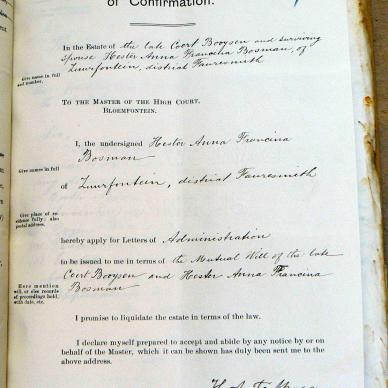 of Confirmation.
In the Estate of the late Coert Booysen and surviving
spouse Hester Anna Francina Bosman, of
Zuurfontein, district Fauresmith
Give names in full
and number.
TO THE MASTER OF THE HIGH COURT,
BLOEMFONTEIN.
I, the undersigned Hester Anna Francina
Bosman
Give names in full
of Zuurfontein, district Fauresmith
Give place of re-
sidence fully; also
postal address.
hereby apply for Letters of Administration
to be issued to me in terms of the Mutual Will of the late
Coert Booysen and Hester Anna Francina
Bosman
Here mention
will, or else records
of proceedings held,
with date, etc.
I promise to liquidate the estate in terms of the law.
I declare myself prepared to accept and abide by any notice by or on
behalf of the Master, which it can be shown has duly been sent me to the
above address.